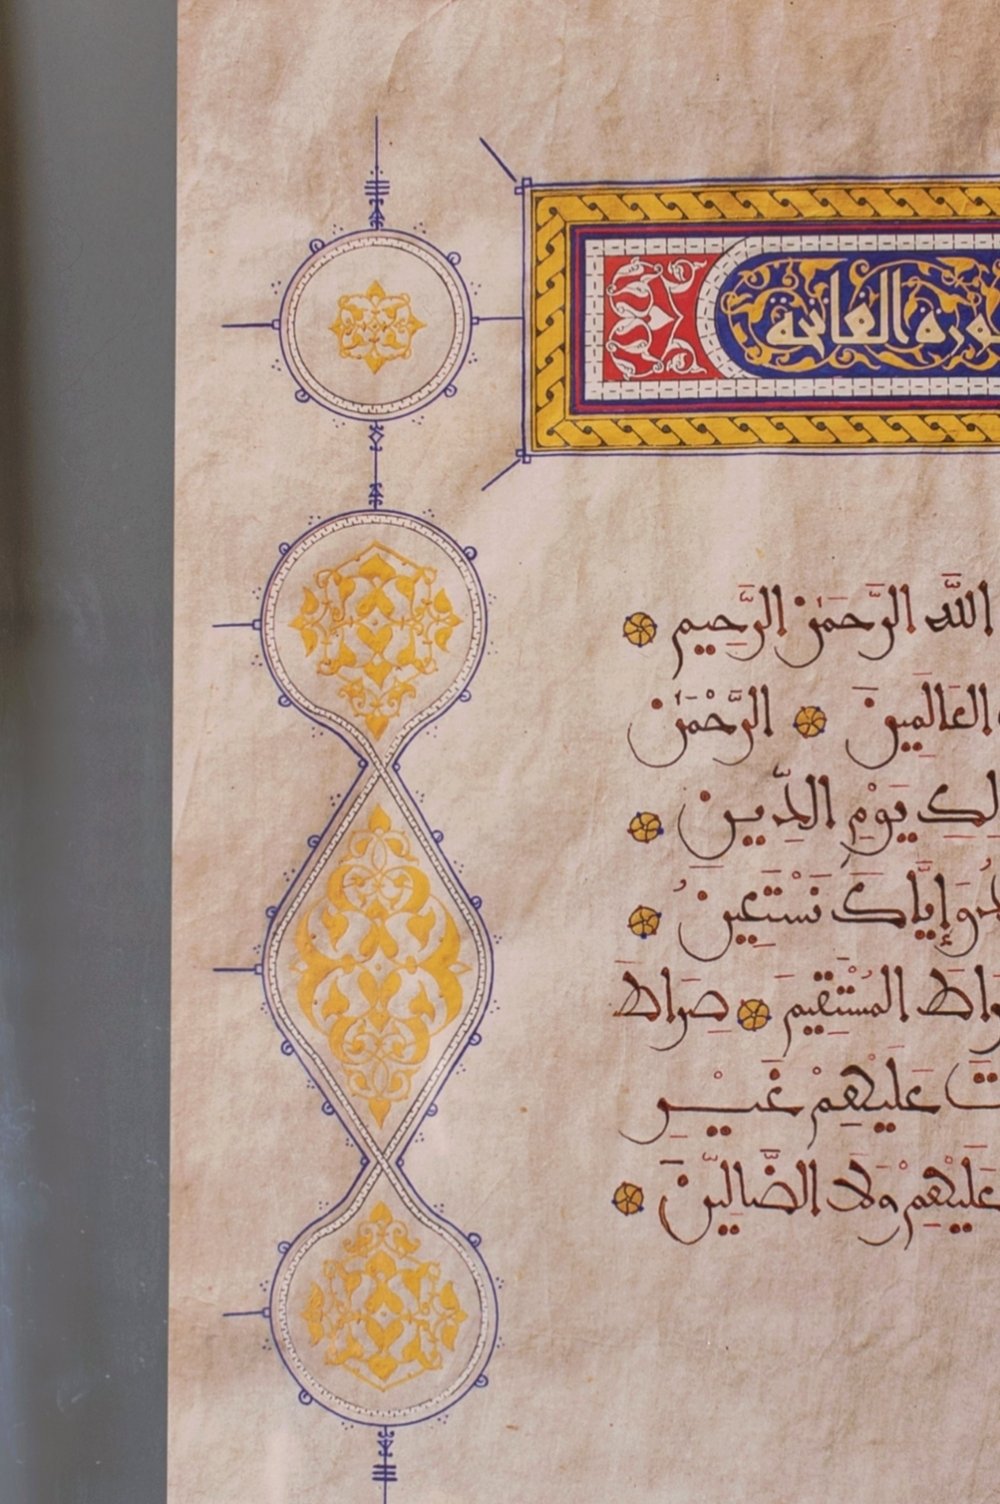 سورة الفاتحة
الله الرَّحمٰن الرَّحِيم
العَالَمِينَ الرَّحْمَٰن
يَوْمِ الدِّين
وَإِيَّاكَ نَسْتَعِينُ
المُسْتَقِيمَ صِرَاطَ
عَلَيْهِمْ غَيْرِ
عَلَيْهِمْ وَلَا الضَّالِّينَ